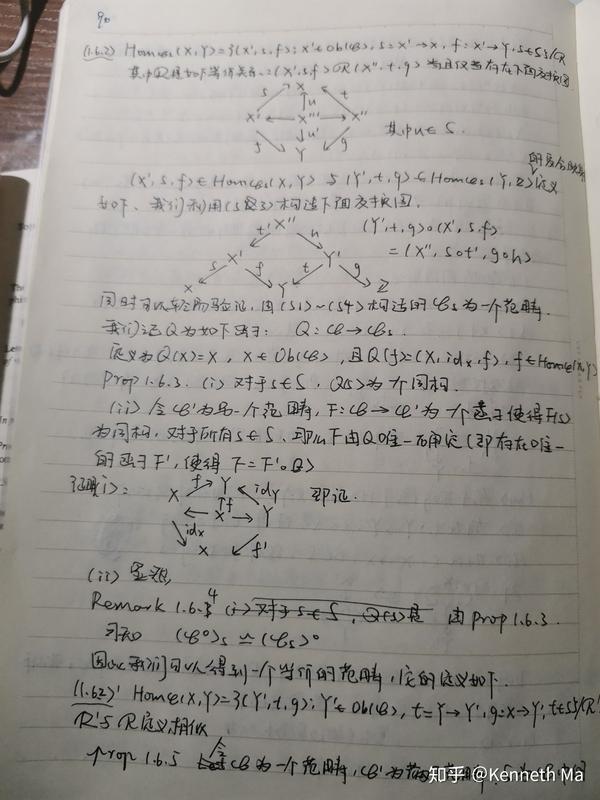 90
(1.6.2) Hom_{𝒞_S}(X,Y)={(X',s,f); X'∈Ob(𝒞), s: X'→X, f: X'→Y, s∈S}/R
其中R是如下等价关系: (X',s,f) R (X'',t,g) 当且仅当存在下图交换图
X
s u t
X' ← X''' → X''
f u' g
Y
其中u∈S.
(X',s,f)∈Hom_{𝒞_S}(X,Y) 与 (Y',t,g)∈Hom_{𝒞_S}(Y,Z) 定义
的复合映射
如下、我们利用(S3)构造下面交换图.
X''
t' h
X' Y'
s f t g
X Y Z
(Y',t,g)∘(X',s,f)
=(X'',s∘t',g∘h)
同时可以轻易验证, 由(S1)~(S4)构造的𝒞_S为一个范畴.
我们记Q为如下函子: Q: 𝒞→𝒞_S.
定义为Q(X)=X, X∈Ob(𝒞), 且Q(f)=(X,id_X,f), f∈Hom_𝒞(X,Y)
Prop 1.6.3. (i) 对于s∈S, Q(s)为一个同构.
(ii) 令𝒞'为另一个范畴, F: 𝒞→𝒞'为一个函子使得F(s)
为同构, 对于所有s∈S、那么F由Q唯一确定(即存在唯一
的函子F', 使得 F=F'∘Q)
证明(i):
f Y id_Y
X ↑f
← X → Y
id_X f'
X
即证.
(ii) 显然,
Remark 1.6.4 (i) 对于s∈S, Q(s)是 由Prop 1.6.3.
可知 (𝒞°)_S ≃ (𝒞_S)°
因此我们可以得到一个等价的范畴, 它的定义如下.
(1.6.2)' Hom_𝒞(X,Y)={(Y',t,g); Y'∈Ob(𝒞), t=Y→Y', g: X→Y', t∈S}/R'
R'与R定义相似
prop 1.6.5 令𝒞为一个范畴, 𝒞'为
知乎 @Kenneth Ma